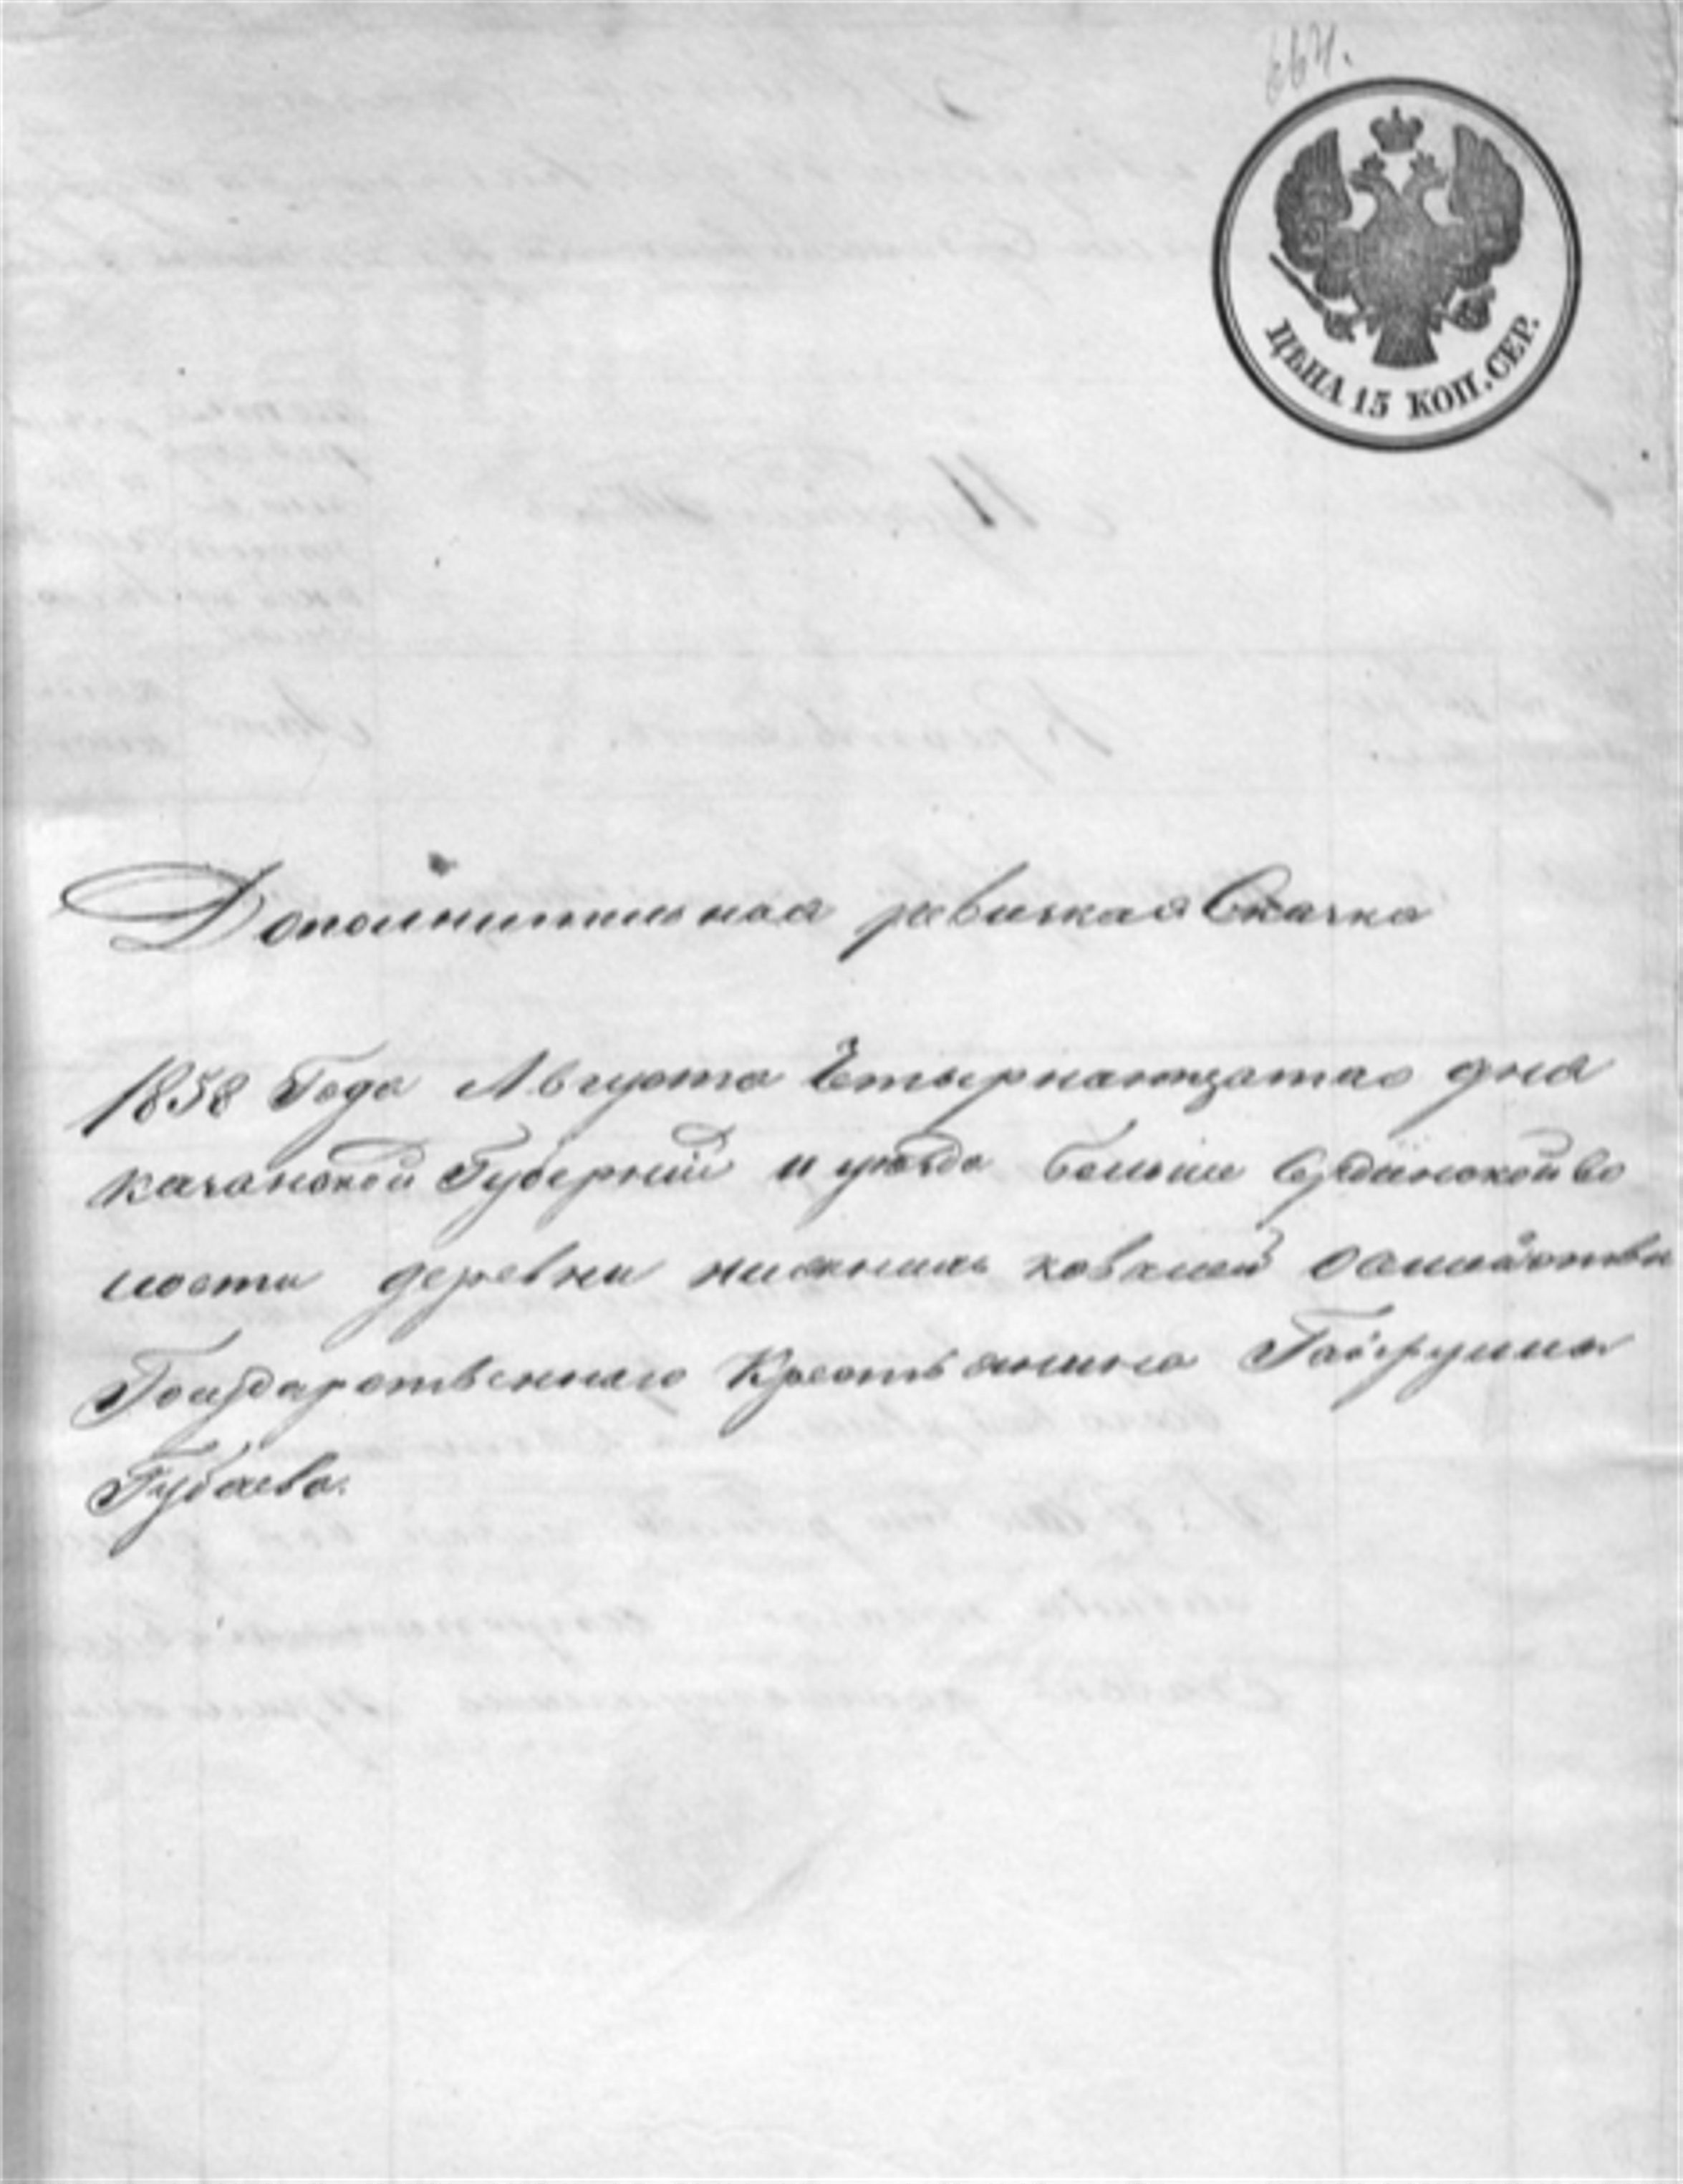 664.
ЦѢНА 15 КОП. СЕР.
Дополнительная ревизкая Сказка
1858 Года Августа Четырнатцатаго дня
казанской Губерний и уезда больше Сердинской во
лости деревни нижнихъ ковалей
Государственнаго Крестьянина
Губаева.